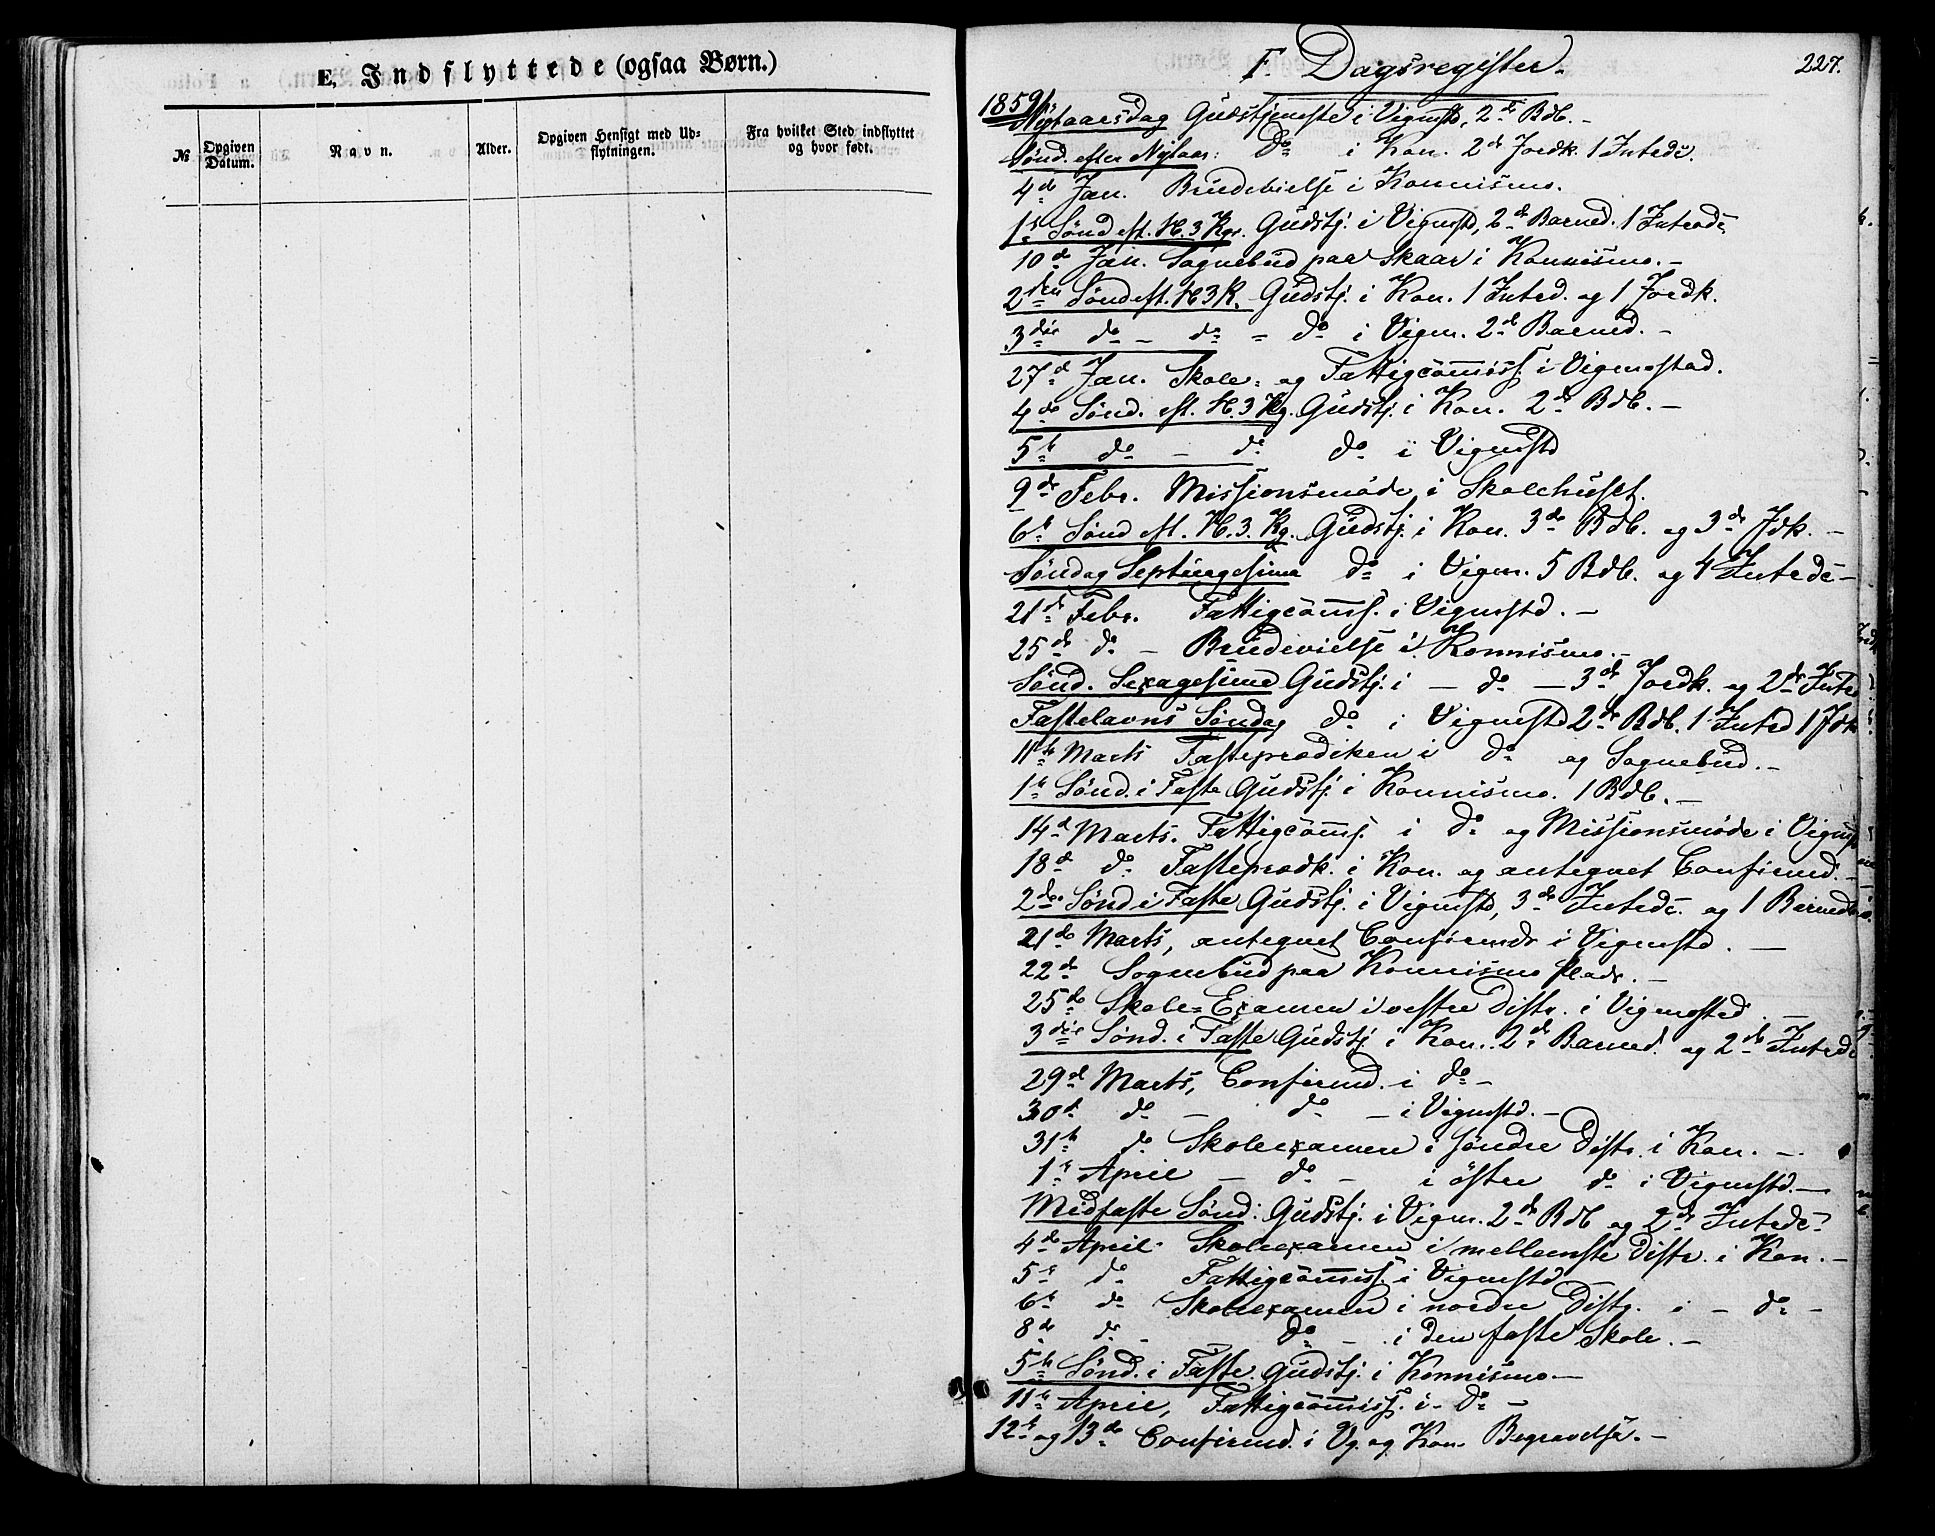 E, Indflyttede (ogsaa Børn.)
№
Opgiven Datum.
Navn.
Alder.
Opgiven Hensigt med Udflytningen.
Fra hvilket Sted indflyttet og hvor født.
F. Dagsregister.
227.
1859
Nytaarsdag Gudstjeneste i Vigmstd, 2de Bdb. -
Sønd. efter Nytaar: Do i Kon. 2de Jordk. 1 Introd.
4de Jan. Brudevielse i Konnismo.
1ste Sønd. eft. H. 3 Kgr. Gudstj. i Vigmstd, 2de Barned. 1 Introd.
10de Jan. Sognebud paa Skaar i Konnismo. -
2den Sønd eft. H 3 K. Gudstj. i Kon. 1 Introd. og 1 Jordk.
3die do - do = do i Vigm. 2de Barned. -
27de Jan. Skole- og Fattigcomiss. i Vigmostad.
4de Sønd. eft. H. 3 Kg. Gudstj. i Kon. 2de Bdb. -
5te do - do do i Vigmstd
9de Febr. Missionsmøde i Skolehuset.
6te Sønd eft. H. 3. Kg. Gudstj. i Kon. 3de Bdb. og 3de Jdk. -
Søndag Septuagesima do i Vigm. 5 Bdb. og 4 Introde -
21de Febr. Fattigcomms. i Vigmstd. -
25de do - Brudevielse i Konnismo. -
Sønd. Sexagesima Gudstj. i - do - 3de Jordk. og 2de Intr
Fastelavns Søndag do i Vigmstd 2de Bdb. 1 Introd 1 Jdk
11te Marts Fasteprædiken i do og Sognebud. -
1ste Sønd. i Faste Gudstj. i Konnismo. 1 Bdb. -
14de Marts. Fattigcomms. i do og Missionsmøde i Vigmst
18de do Fasteprædk. i Kon. og antegnet Confirmd. -
2den Sønd i Faste Gudstj. i Vigmstd, 3de Introde. og 1 Barnedb
21de Marts, antegnet Confirmder i Vigmstd. -
22de Sognebud paa Konnismo Plads. -
25de Skole-Examen i vestre Distr. i Vigmosted. -
3die Sønd. i Faste Gudstj. i Kon. 2de Barned. og 2de Introde
29de Marts, Confirmd. i do -
30te do - do - i Vigmstd. -
31te do Skoleexamen i søndre Distr. i Kon. -
1ste April - do - i østre do i Vigmstd. -
Midfaste Sønd: Gudstj. i Vigm. 2de Bdb og 2de Introde.
4de April Skoleexamen i mellemste Distr. i Kon. -
5te do Fattigcomiss. i Vigmstd
6te do Skoleexamen i nordre Distr. i - do -
8de do - do - i den faste Skole. -
5te Sønd. i Faste. Gudstj. i Konnismo. -
11te April, Fattigcomiss. i - do -
12te og 13de Confirmd. i Vg. og Kon. Begravelse. -